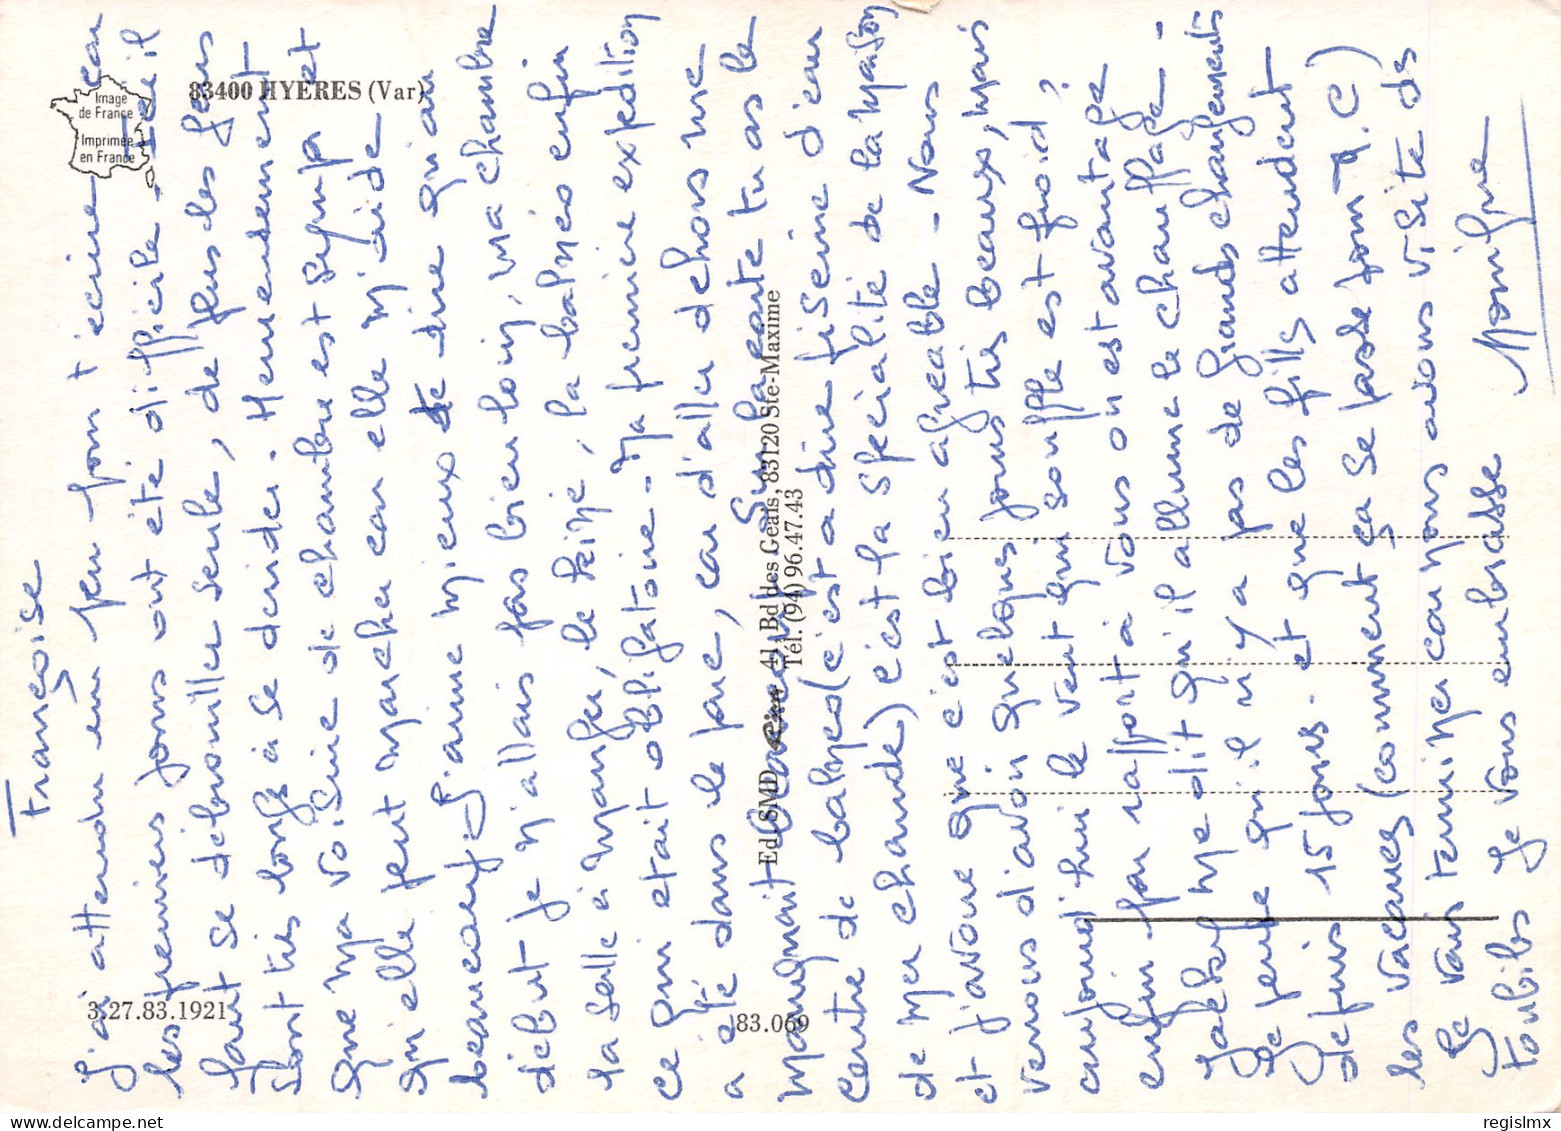 Françoise
J'ai attendu un peu pour t'écrire car
les premiers jours ont été difficile - Ici il
faut se débrouiller seule, de plus les gens
sont très longs à se dérider. Heureusement
que ma voisine de chambre est sympa et
qu'elle peut marcher car elle m'aide
beaucoup. J'aime mieux te dire qu'au
début je n'allais pas bien loin, ma chambre
la salle à manger, le kiné, la balnéo enfin
ce qui était obligatoire - Ma première expédition
a été dans le parc, car d'aller dehors me
manquait beaucoup
centre de balnéo (c'est à dire piscine d'eau
de mer chaude) c'est la spécialité de la maison
et j'avoue que c'est bien agréable - Nous
venons d'avoir quelques jours très beaux, mais
aujourd'hui le vent qui souffle est froid ?
enfin par rapport à vous on est avantagé
Jacky me dit qu'il allume le chauffage -
Je pense qu'il n'y a pas de grands changements
depuis 15 jours - et que les filles attendent
les vacances (comment ça se passe pour
Je vais terminer car nous avons visite des
toubibs Je vous embrasse
Monique
83400 HYERES (Var)
Image
de France
Imprimée
en France
Ed. SMD 41 Bd des Geais, 83120 Ste-Maxime
Tél. (94) 96.47.43
3.27.83.1921
83.069
regislmx